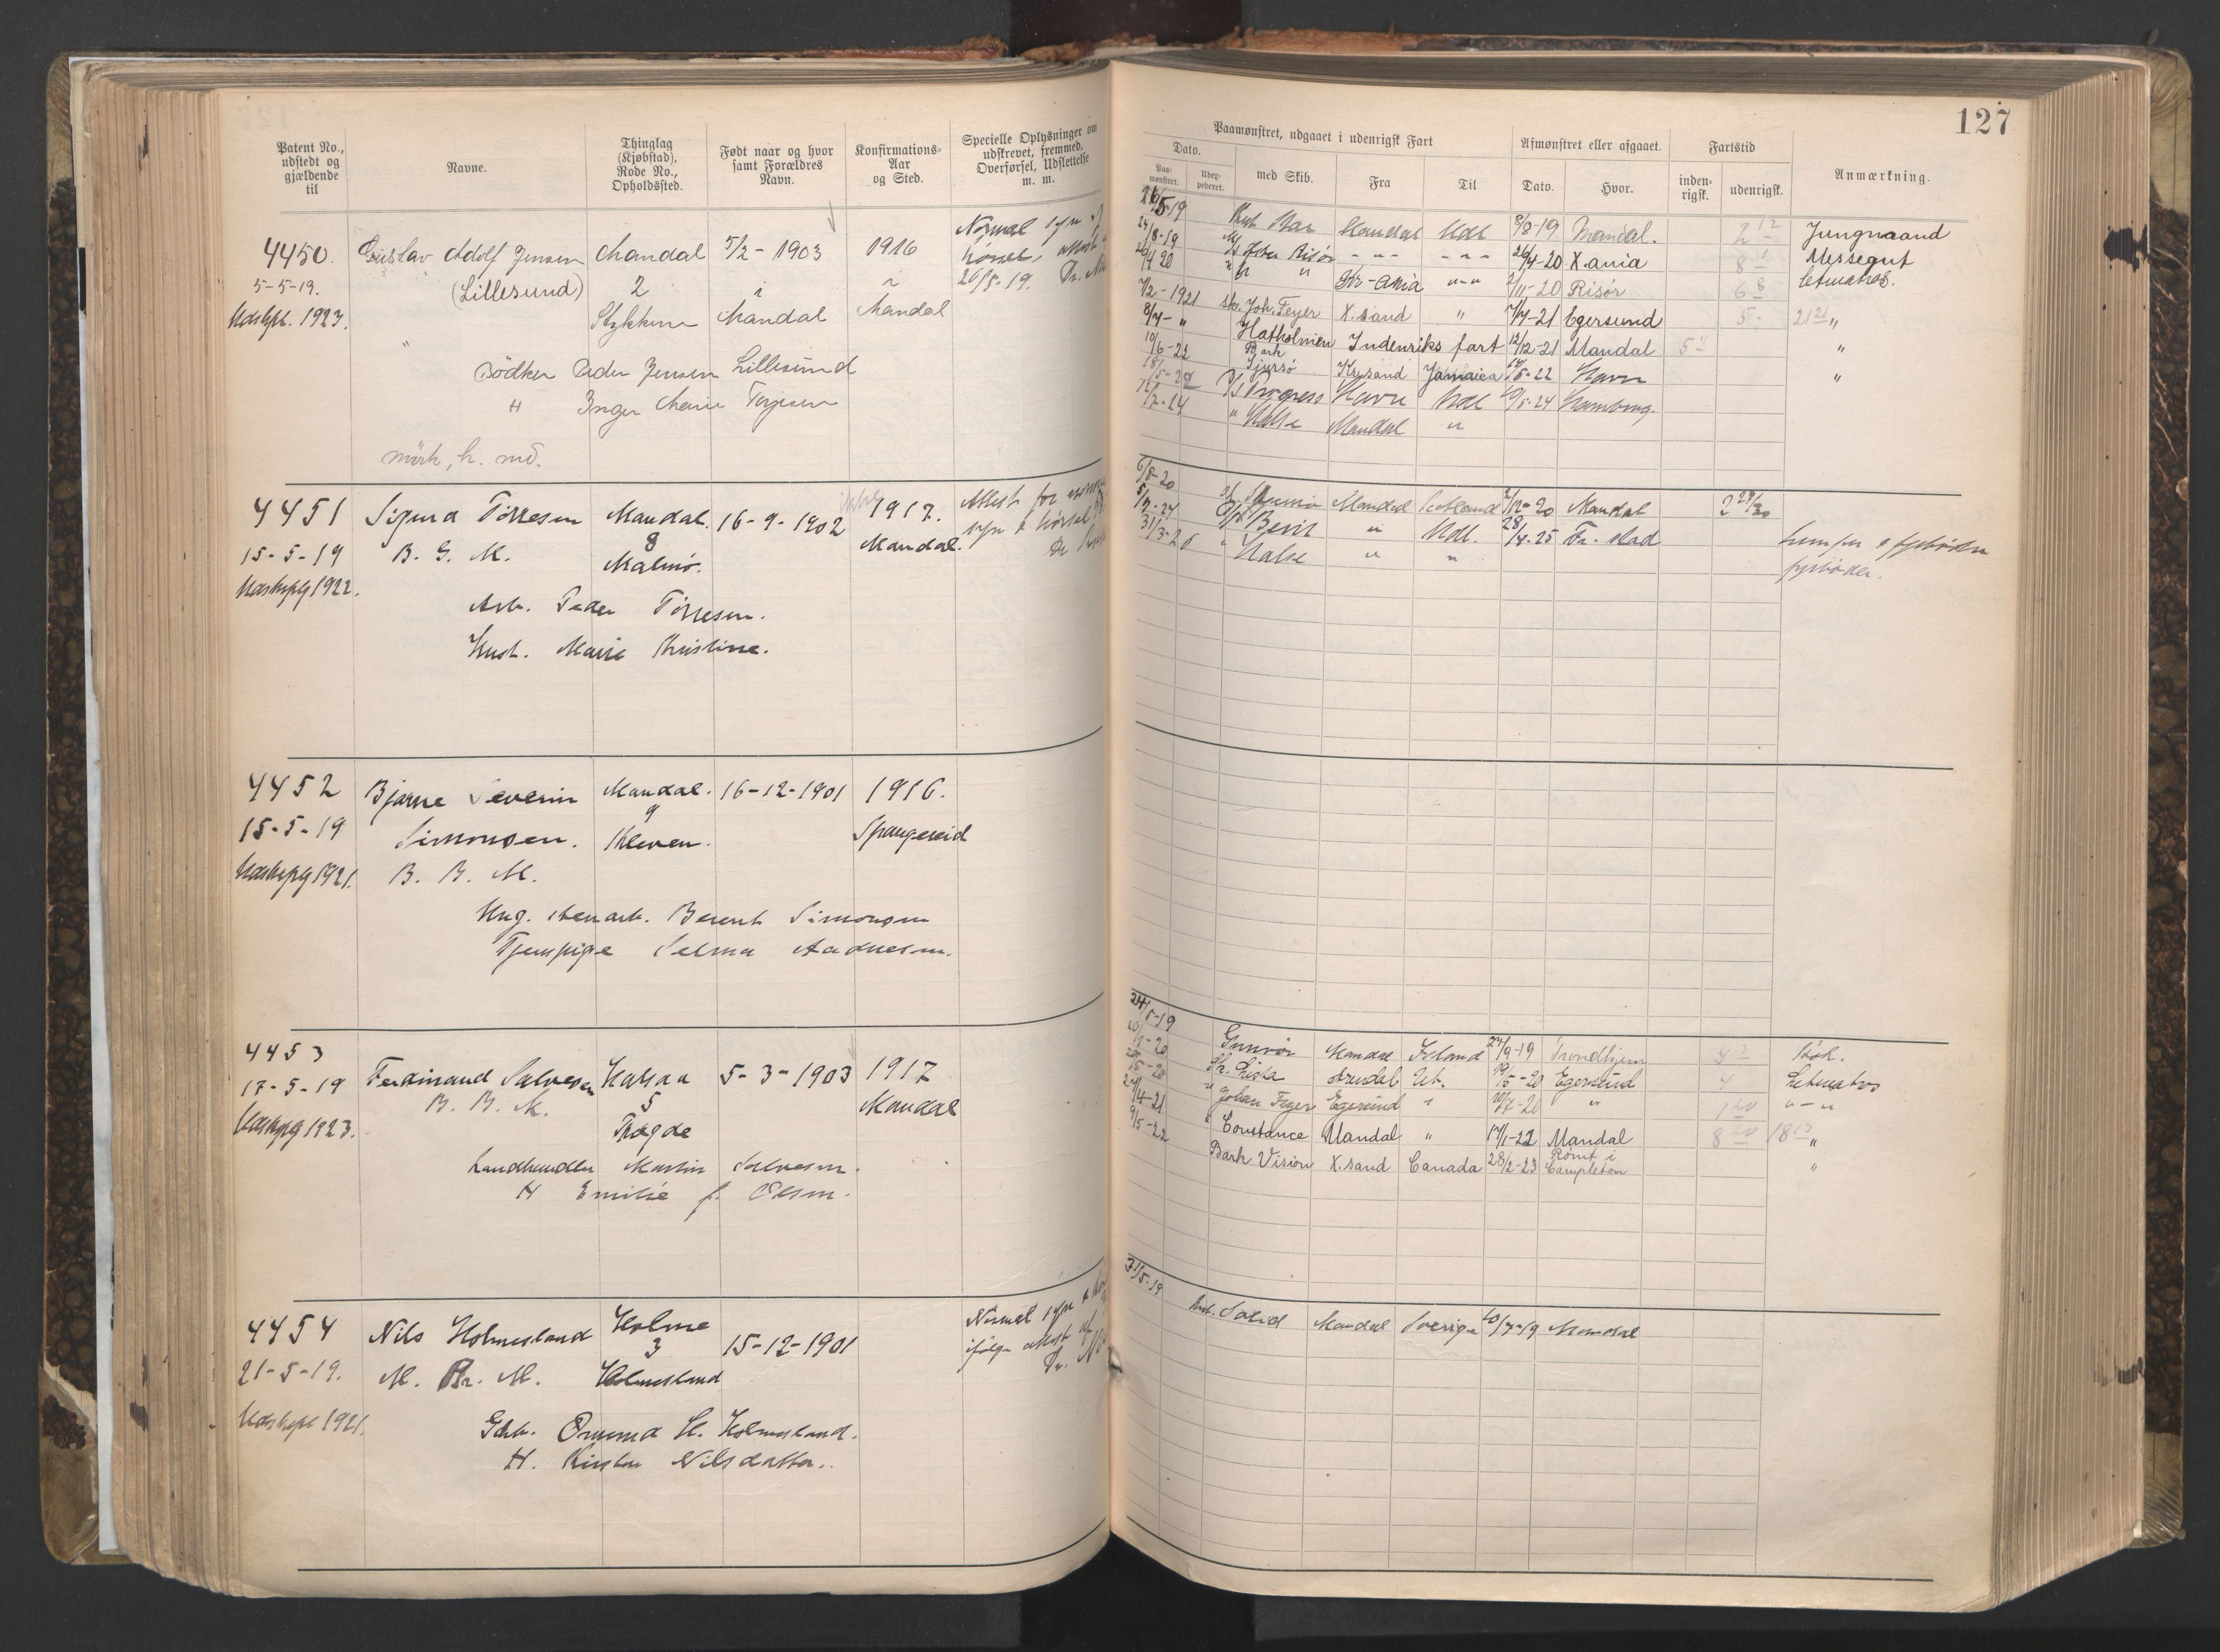 127
Patent No.,
udstedt og
gjældende
til
Navne.
Thinglag
(Kjøbstad),
Rode No.,
Opholdssted.
Født naar og hvor
samt Forældres
Navn.
Konfirmations-
Aar
og Sted.
Specielle Oplysninger om
udskrevet, fremmed,
Overførsel, Udslettelse
m. m.
Paamønstret, udgaaet i udenrigsk Fart
Dato.
Paa-
mønstret.
med Skib.
Fra
Til
Afmønstret eller afgaaet.
Dato.
Hvor.
Fartstid
inden-
rigsk.
udenrigsk.
Anmærkning.
4450. Gustav Adolf Jensen Mandal 5/2 - 1903 1916 Normal syn
5-5-19. (Lillesund) 2 " " hørsel, attest
26/5-19. Dr.
Udskpl. 1923. Mandal Mandal
Bødker Peder Jensen Lillesund
H Inger Marie Torjesen
mörk, h. md.
26/5-19 Mandal Udl 8/8-19 Mandal. Jungmand
24/8-19 Risør - " - - " - 26/4-20 X.ania 8 Messegut
26/4 20 " " " - " /11-20 Risør 6 8 letmatros.
/2-1921 Joh. Feyer X.sand " /4-21 Egersund 5 - 21 "
8/4- " Hatholmen Indenriks fart 12/12-21 Mandal 5 "
10/6-22 Bark Sjursø Kr.sand Jamaica /5-22 Havre "
Progress Havre Udl /5-24 Hamburg.
/7-24 " Halse Mandal "
4451 Sigurd Törresen Mandal. 16-9-1902 1917. Attest for
15-5-19 B. G. M. 8 Mandal. syn & hørsel
Malmø. Dr
Udskrpg 1922.
Arb. Peder Törresen.
Hust. Marie Kristine.
6/8-20 Mandal Scotland /12-20 Mandal 2 29/30
5/7-24 Bevit " Udl. 28/4-25 Fr.stad lemper & fyrbøder
31/3-26 " Halse " " fyrbøder.
4452 Bjarne Severin Mandal. 16-12-1901 1916.
15-5-19 Simonsen. 9 Spangereid
Kleven.
Udskrpg 1921. B. B. M.
Ung. stenarb. Berent Simonsen
Tjenpige Selma Aadnesen.
4453
17-5-19 Ferdinand Salvesen Halsaa 5-3-1903 1917
B. B. M. 5 Mandal
Udskrpg 1923. Tregde
Landhandler Martin Salvesen.
H Emilie f. Olsen.
24/5-19 Gunvör Mandal Island 24/9-19 Trondhjem 4 Kok.
Lista Arendal Udl. 19/5-20 Egersund 4 Letmatros
" Johan Feyer Egersund " /7-20 " 1 20 " - "
24/4-21 " Constance Mandal " 17/1-22 Mandal 8 20 18 "
9/5-22 Bark Vision X.sand Canada 28/2-23 Rømt i Campleton "
4454 Nils Holmesland Holme 15-12-1901 Normal syn &
21-5-19. M. Br. M. 3 ifølge attest af
Holmesland Dr.
Udskrpl 1921.
Gdb. Omund St. Holmesland.
H. Kirsten Nilsdatter.
31/5-19 Solid Mandal Sverige 10/7-19 Mandal